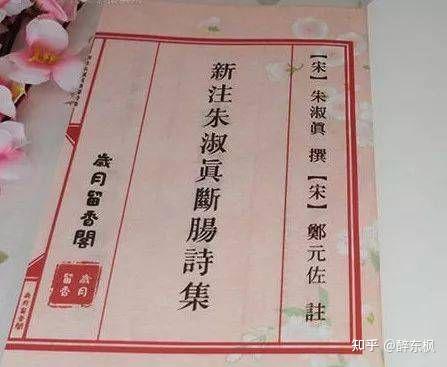 【宋】朱淑眞 撰【宋】鄭元佐 註
新注朱淑眞斷腸詩集
歲月留香閣
歲月
留香
歲月留香閣
知乎 @醉东枫